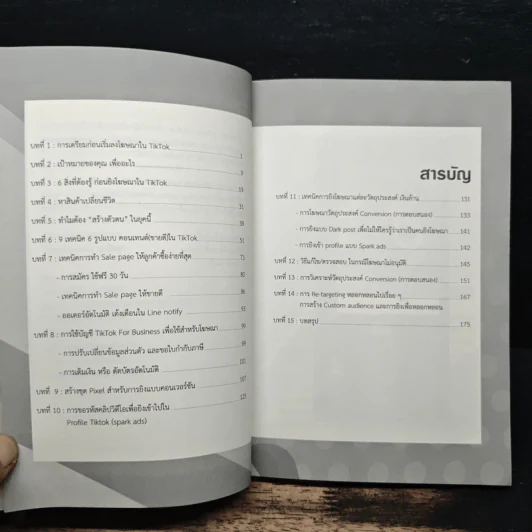 บทที่ 1 : การเตรียมก่อนเริ่มลงโฆษณาใน TikTok 1
บทที่ 2 : เป้าหมายของคุณ เพื่ออะไร 9
บทที่ 3 : 6 สิ่งที่ต้องรู้ ก่อนยิงโฆษณาใน TikTok 19
บทที่ 4 : หาสินค้าเปลี่ยนชีวิต
บทที่ 5 : ทำไมต้อง "สร้างตัวตน" ในยุคนี้
บทที่ 6 : 9 เทคนิค 6 รูปแบบ คอนเทนต์(ขายดี)ใน TikTok 51
บทที่ 7 : เทคนิคการทำ Sale page ให้ลูกค้าซื้อง่ายที่สุด 73
- การสมัคร ใช้ฟรี 30 วัน
- เทคนิคการทำ Sale page ให้ขายดี
- ออเดอร์อัตโนมัติ เด้งเตือนใน Line notify
บทที่ 8 : การใช้บัญชี TikTok For Business เพื่อใช้สำหรับโฆษณา
- การปรับเปลี่ยนข้อมูลส่วนตัว และขอใบกำกับภาษี
- การเติมเงิน หรือ ตัดบัตรอัตโนมัติ
บทที่ 9 : สร้างชุด Pixel สำหรับการยิงแบบคอนเวอร์ชัน 107
บทที่ 10 : การขอรหัสคลิปวิดีโอเพื่อยิงเข้าไปใน 125
Profile Tiktok (spark ads)
สารบัญ
บทที่ 11 : เทคนิคการยิงโฆษณาแต่ละวัตถุประสงค์ เงินล้าน 131
- การโฆษณาวัตถุประสงค์ Conversion (การตอบสนอง) 133
- การยิงแบบ Dark post เพื่อไม่ให้ใครรู้ว่าเราเป็นคนยิงโฆษณา 141
- การยิงเข้า profile แบบ Spark ads 142
บทที่ 12 : วิธีแก้ไข/ตรวจสอบ ในกรณีโฆษณาไม่อนุมัติ 145
บทที่ 13 : การวิเคราะห์วัตถุประสงค์ Conversion (การตอบสนอง) 151
บทที่ 14 : การ Re-targeting หลอกหลอนไปเรื่อย ๆ 167
การสร้าง Custom audience และการยิงเพื่อหลอกหลอน
บทที่ 15 : บทสรุป 175